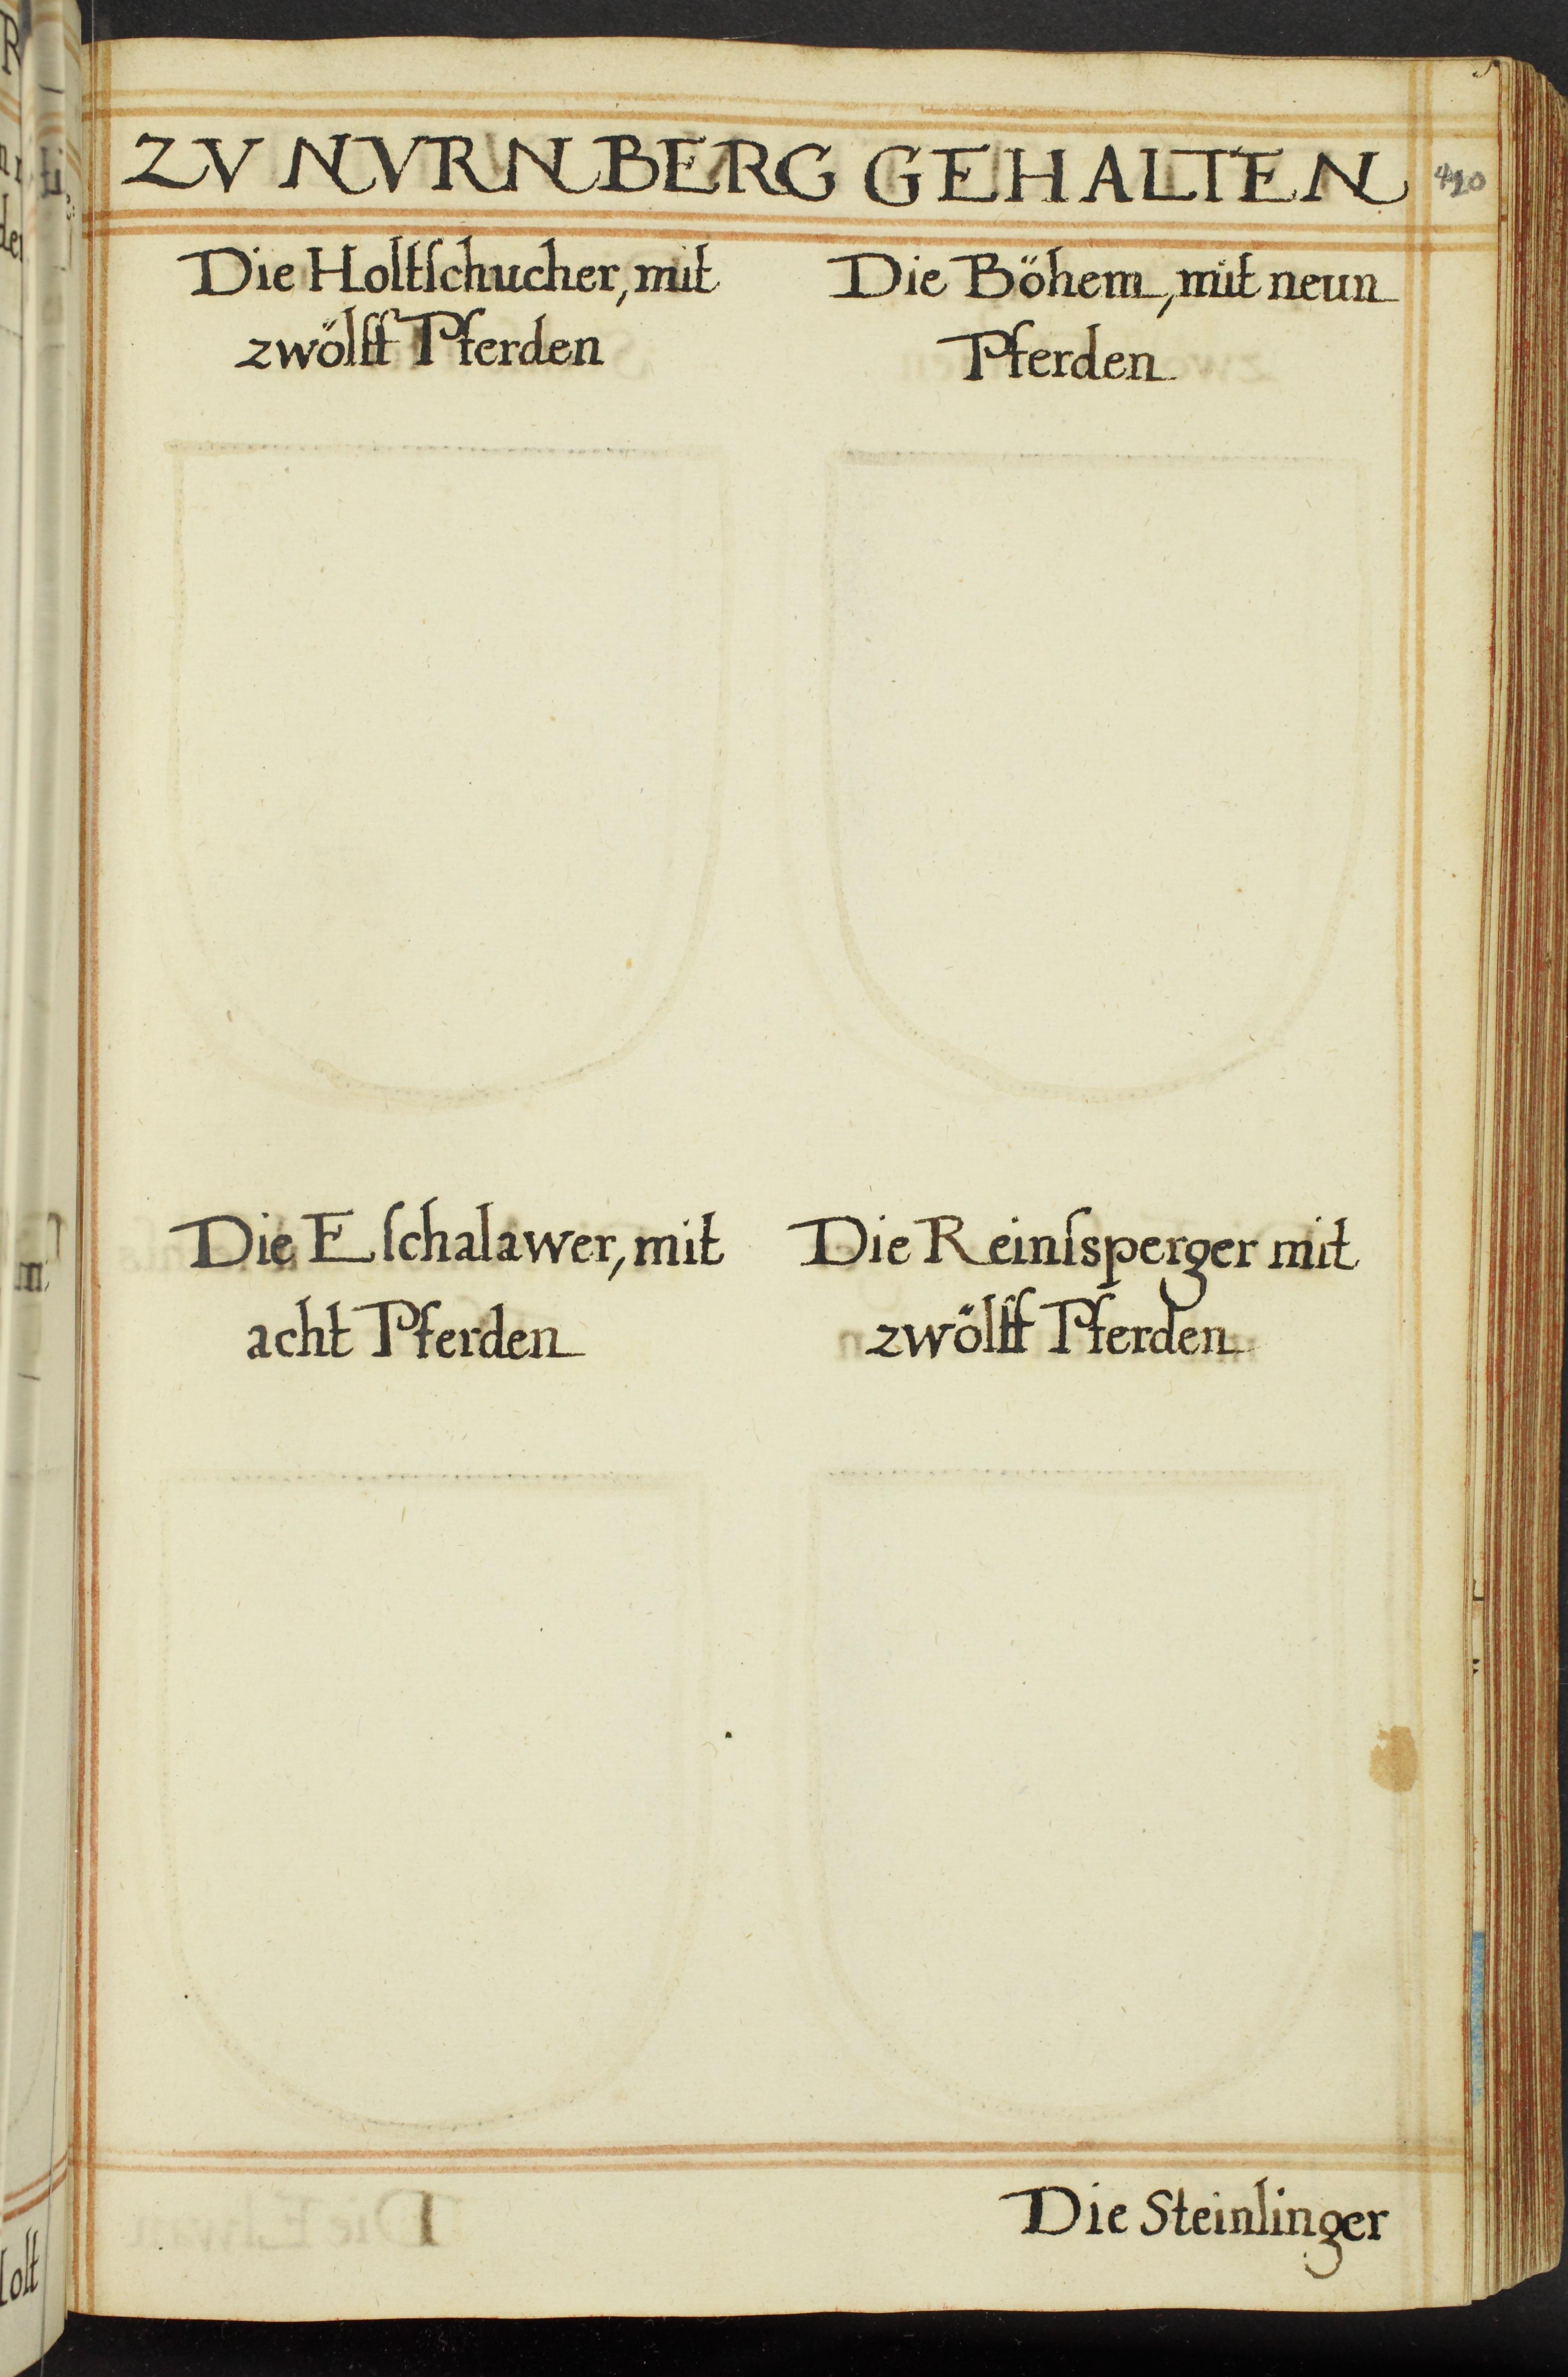 ZV NVRNBERG GEHALTEN
Die Holtſchucher, mit
zwölff Pferden
Die Böhem, mit neun
Pferden
Die Eſchalawer, mit
acht Pferden
Die Reinſsperger mit
zwölff Pferden
Die Steinlinger